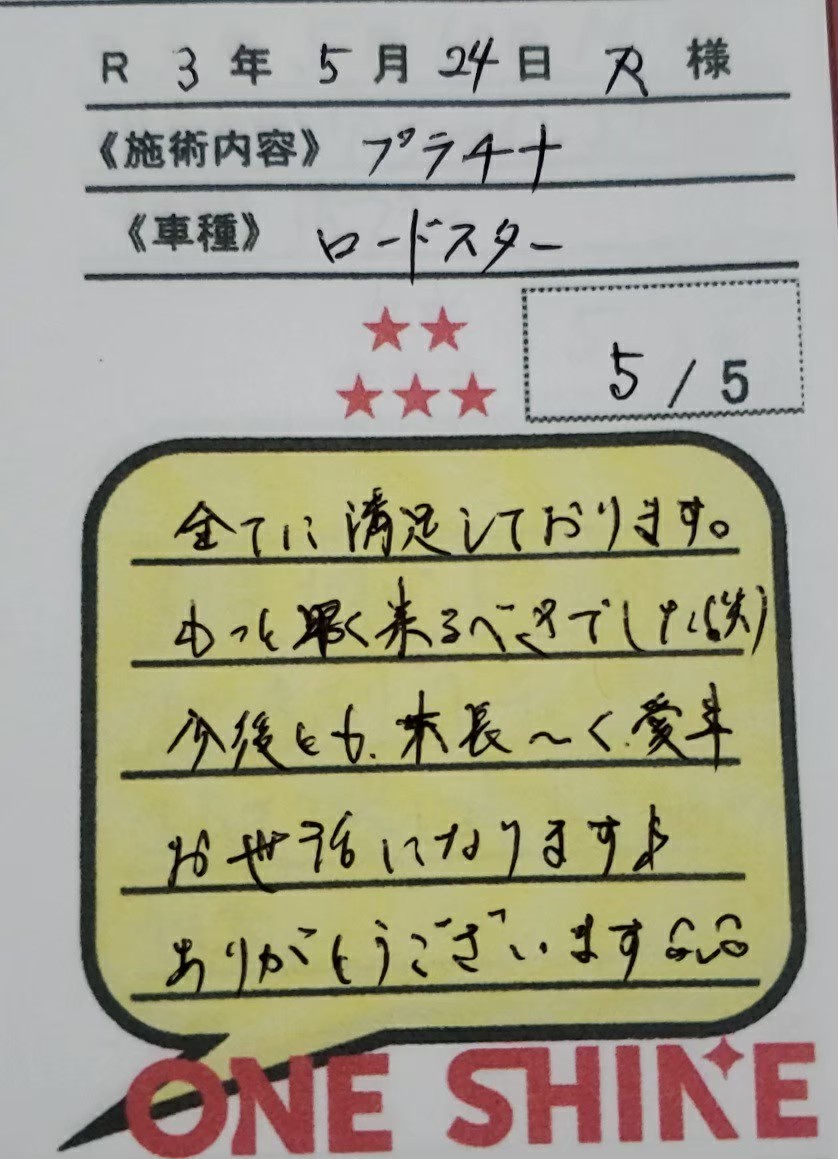 R 3年 5月 24日 R 様
《施術内容》 プラチナ
《車種》 ロードスター
★★
★★★
5/5
全てに満足しております。
もっと早く来るべきでした(笑)
今後とも、末長〜く、愛車
お世話になります♪
ありがとうございます
ONE SHINE